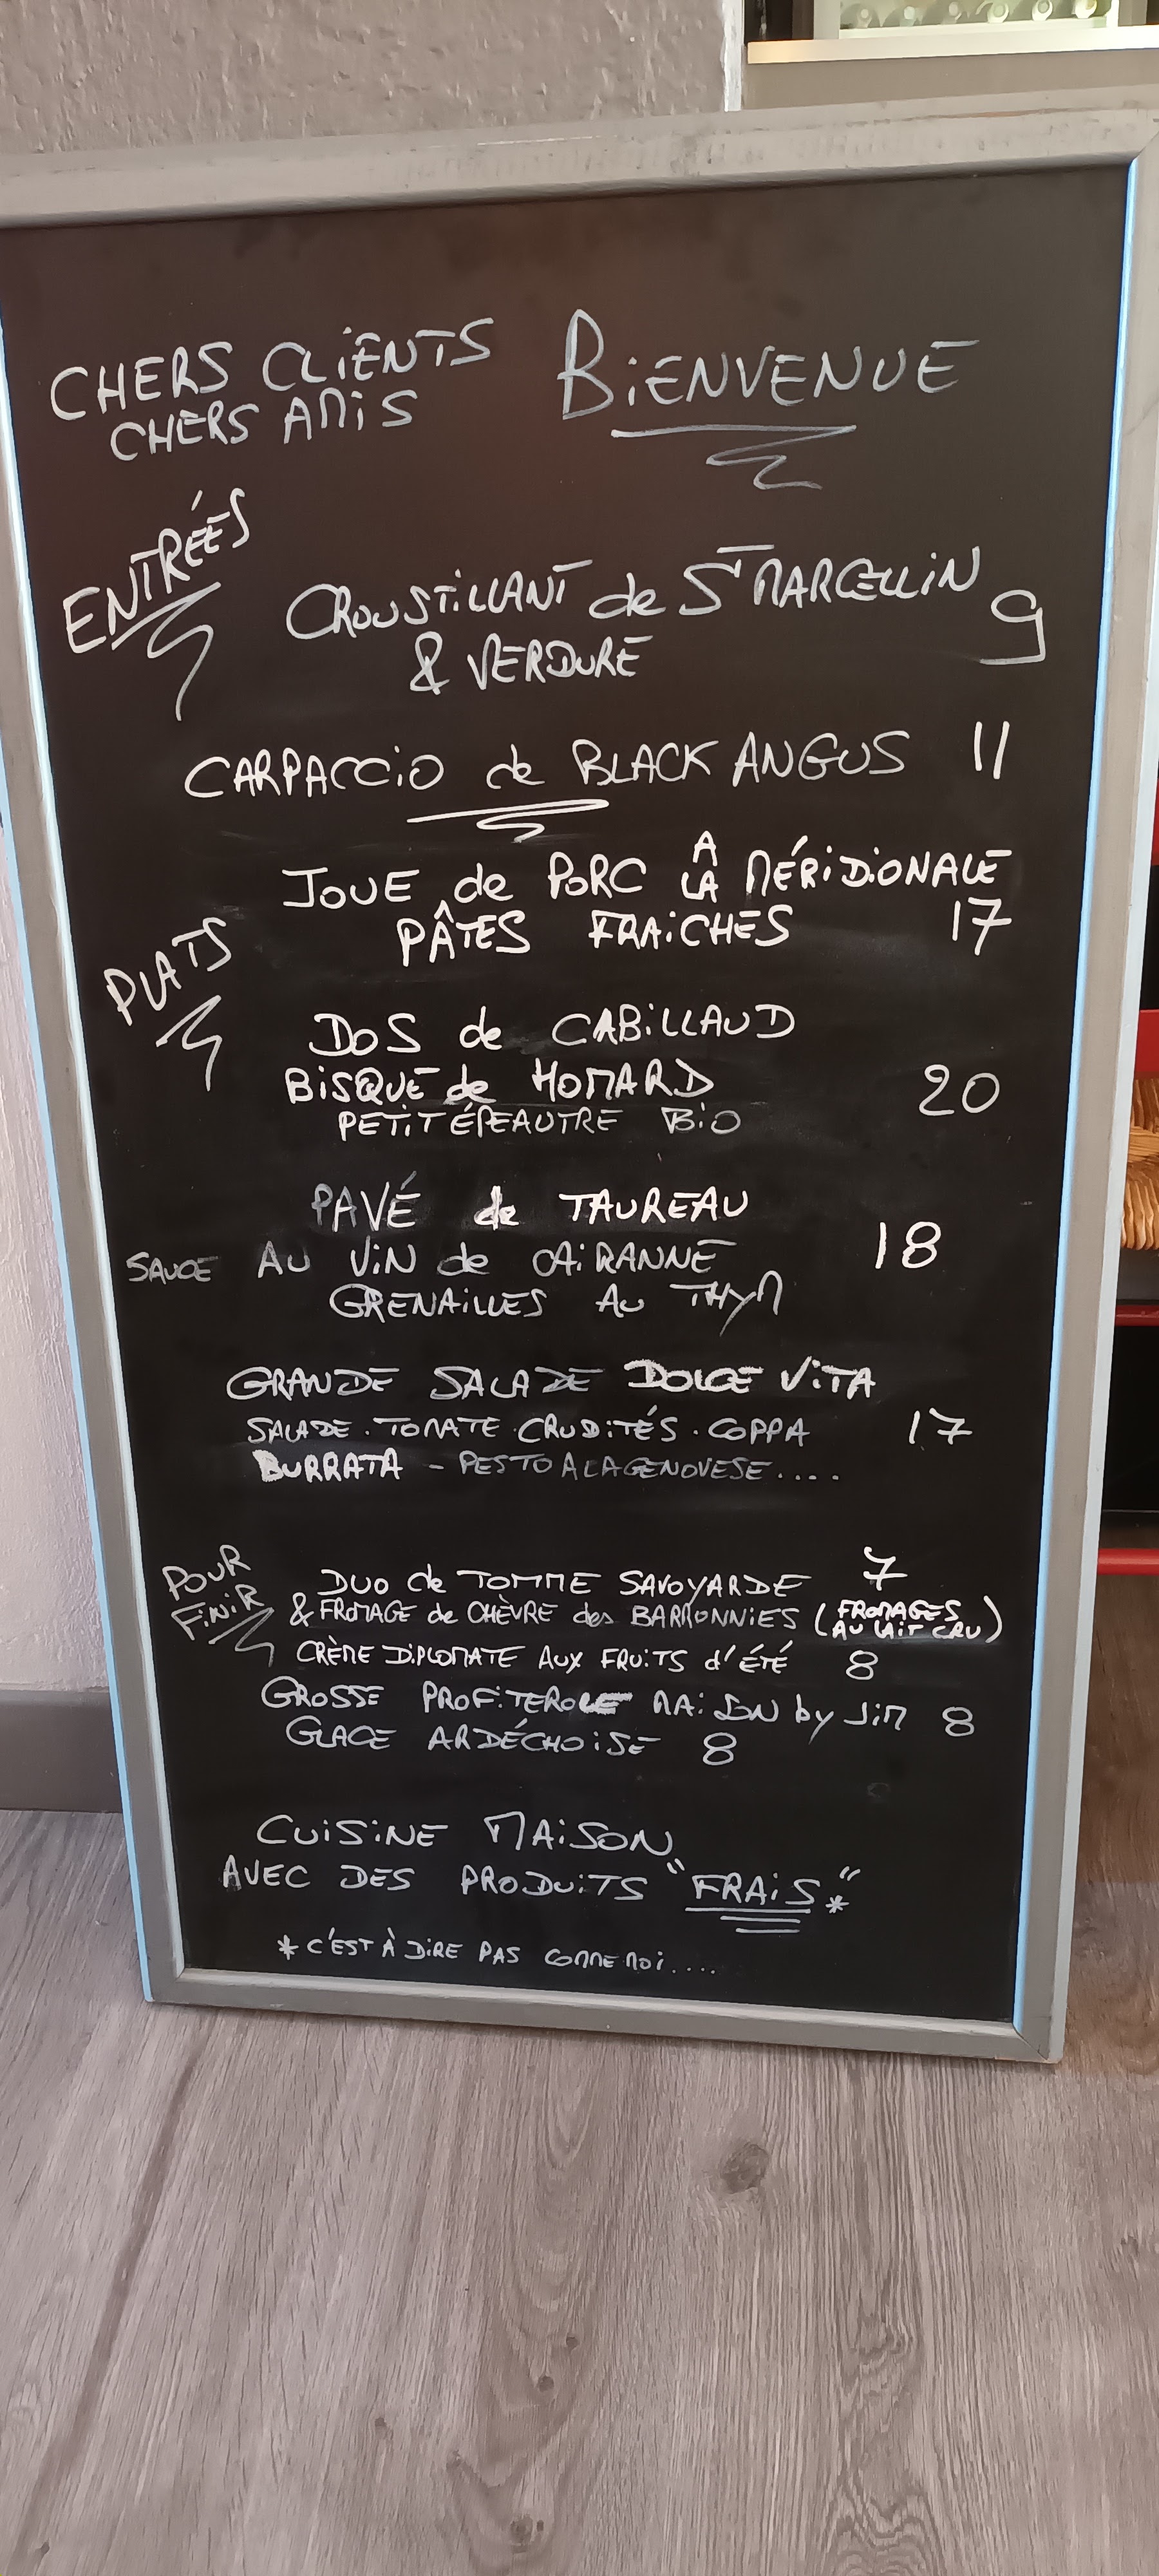 CHERS CLIENTS BIENVENUE
CHERS AMIS
ENTRÉES
CROUSTILLANT de ST MARCELLIN 9
& VERDURE
CARPACCIO de BLACK ANGUS 11
PLATS
JOUE de PORC A LA MÉRIDIONALE
PÂTES FRAICHES 17
DOS de CABILLAUD
BISQUE de HOMARD 20
PETIT ÉPEAUTRE BIO
PAVÉ de TAUREAU
SAUCE AU VIN de CAIRANNE 18
GRENAILLES AU THYM
GRANDE SALADE DOLCE VITA
SALADE . TOMATE . CRUDITÉS . COPPA 17
BURRATA - PESTO A LA GENOVESE....
POUR FINIR
DUO de TOMME SAVOYARDE 7
& FROMAGE de CHÈVRE des BARRONNIES (FROMAGES AU LAIT CRU)
CRÈME DIPLOMATE AUX FRUITS d'ÉTÉ 8
GROSSE PROFITEROLE MAISON by JIM 8
GLACE ARDÉCHOISE 8
CUISINE MAISON
AVEC DES PRODUITS "FRAIS*"
* C'EST À DIRE PAS COMME MOI....